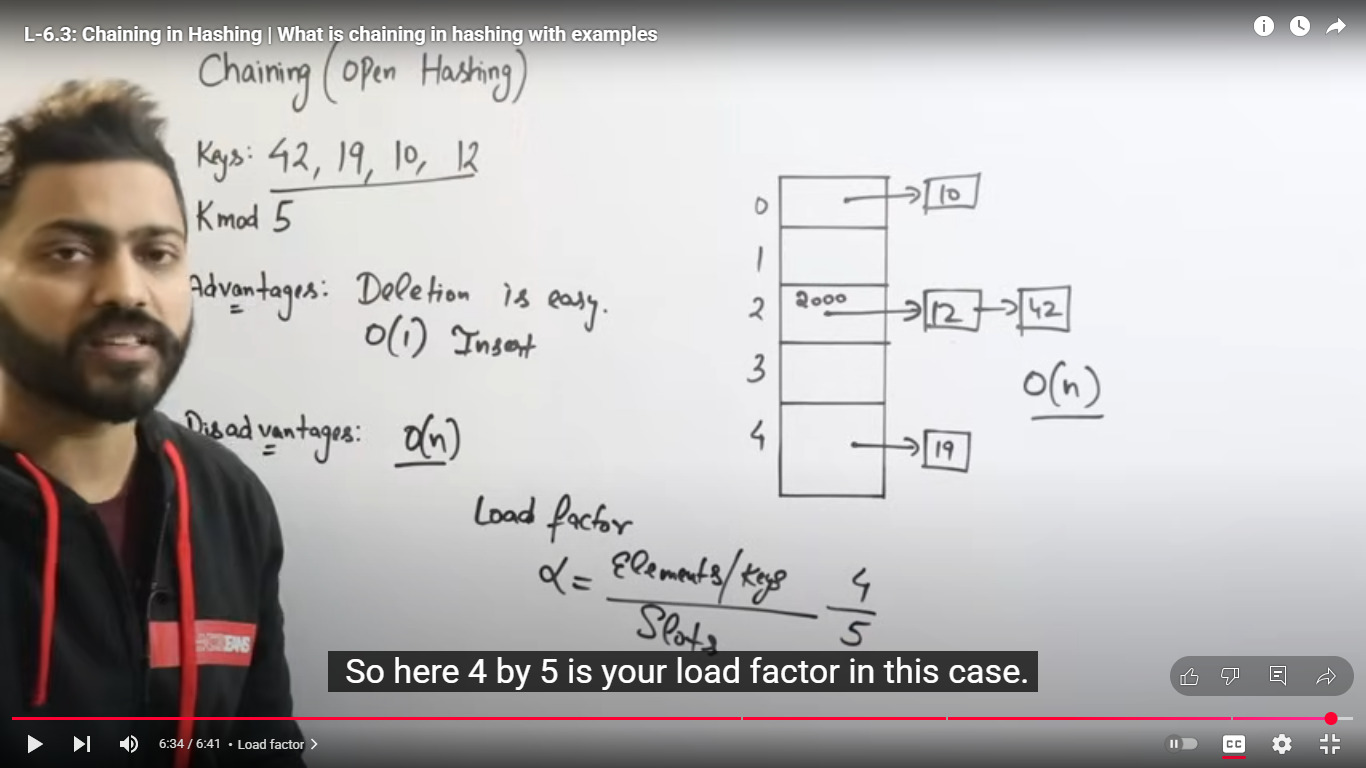 L-6.3: Chaining in Hashing | What is chaining in hashing with examples
Chaining (Open Hashing)
Keys: 42, 19, 10, 12
Kmod 5
Advantages: Deletion is easy.
O(1) Insert
Disadvantages: O(n)
Load factor
α = Elements/Keys
Slots
4
5
0
10
1
2
2000
12
42
3
O(n)
4
19
So here 4 by 5 is your load factor in this case.
6:34 / 6:41 • Load factor
CC